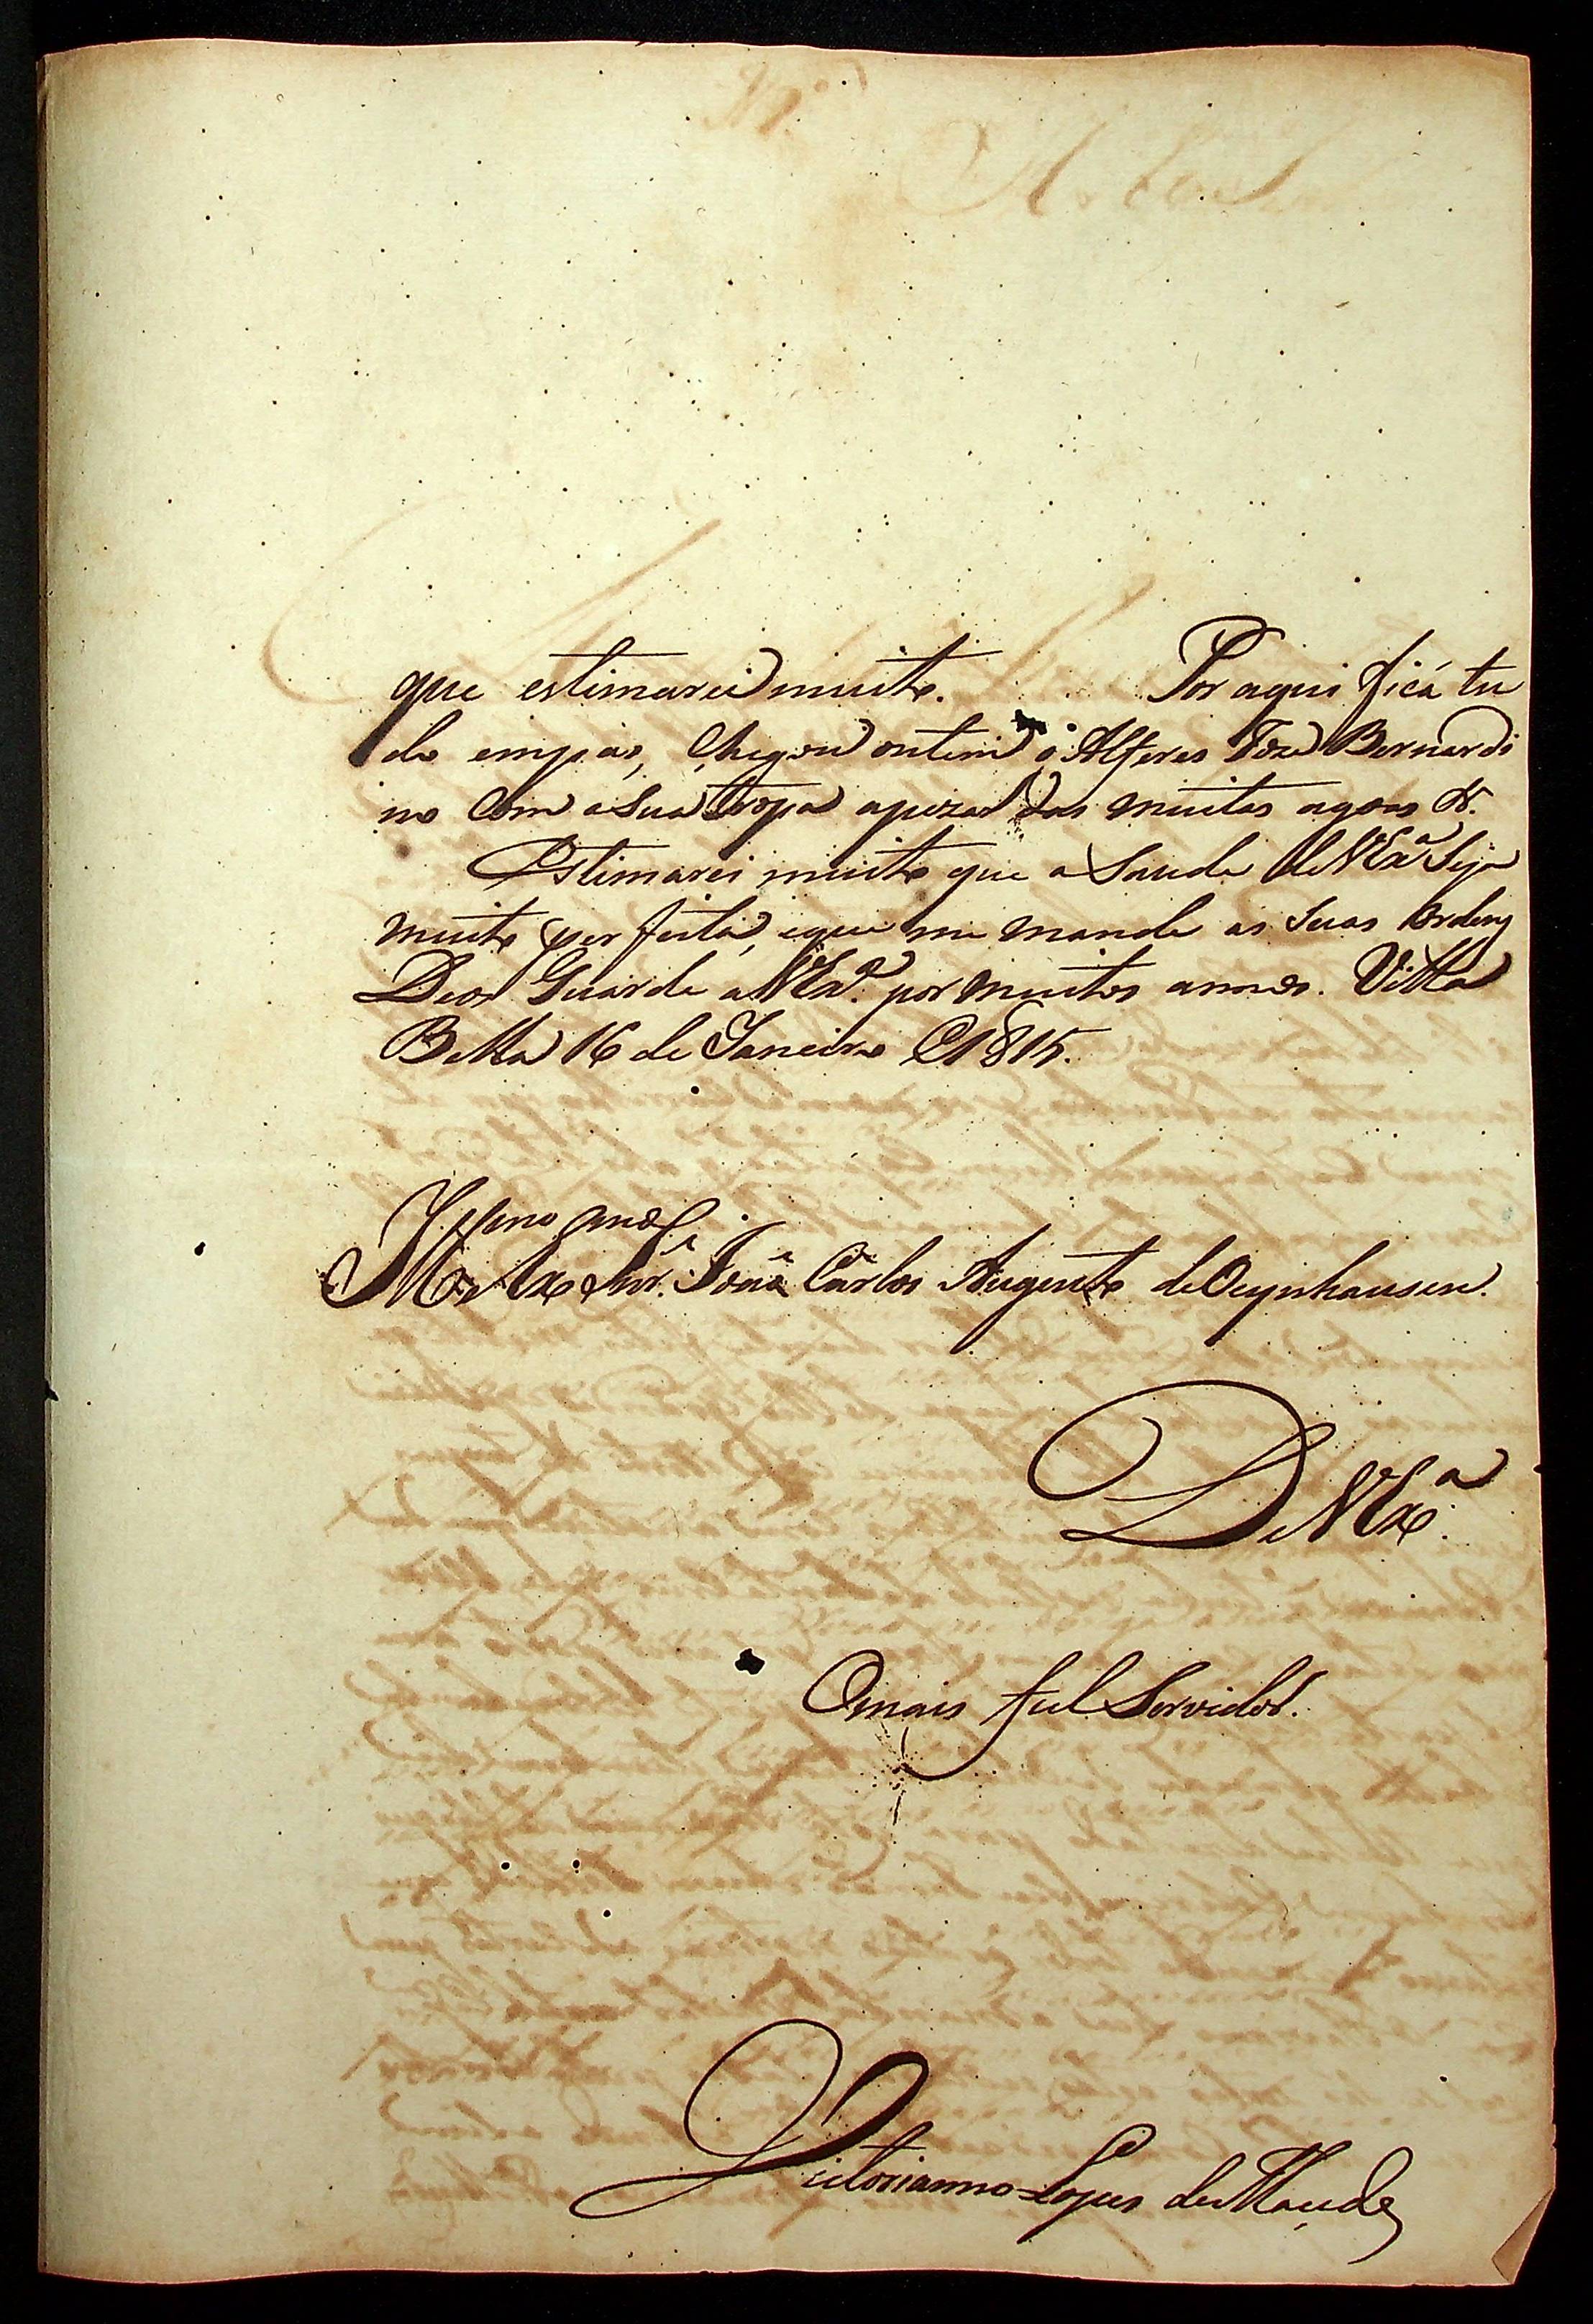 que estimarei muito. Por aqui ficá tu
do em pás, Chegou ontem o Alferes Joze Bernardi
no Com a Sua tropa apezar das muitas agoas &.
Estimarei muito que a Saude de VExª Seja
muito perfeita, e que me mande as Suas Ordens
Deos Guarde a VExª. por muitos annos. Villa
Bella 16 de Janeiro de 1815.
Illmo e Exmo Snr. João Carlos Augusto de Oeynhausen.
De VExª.
O mais fiel Servidor.
Victorianno Lopes de Macedo